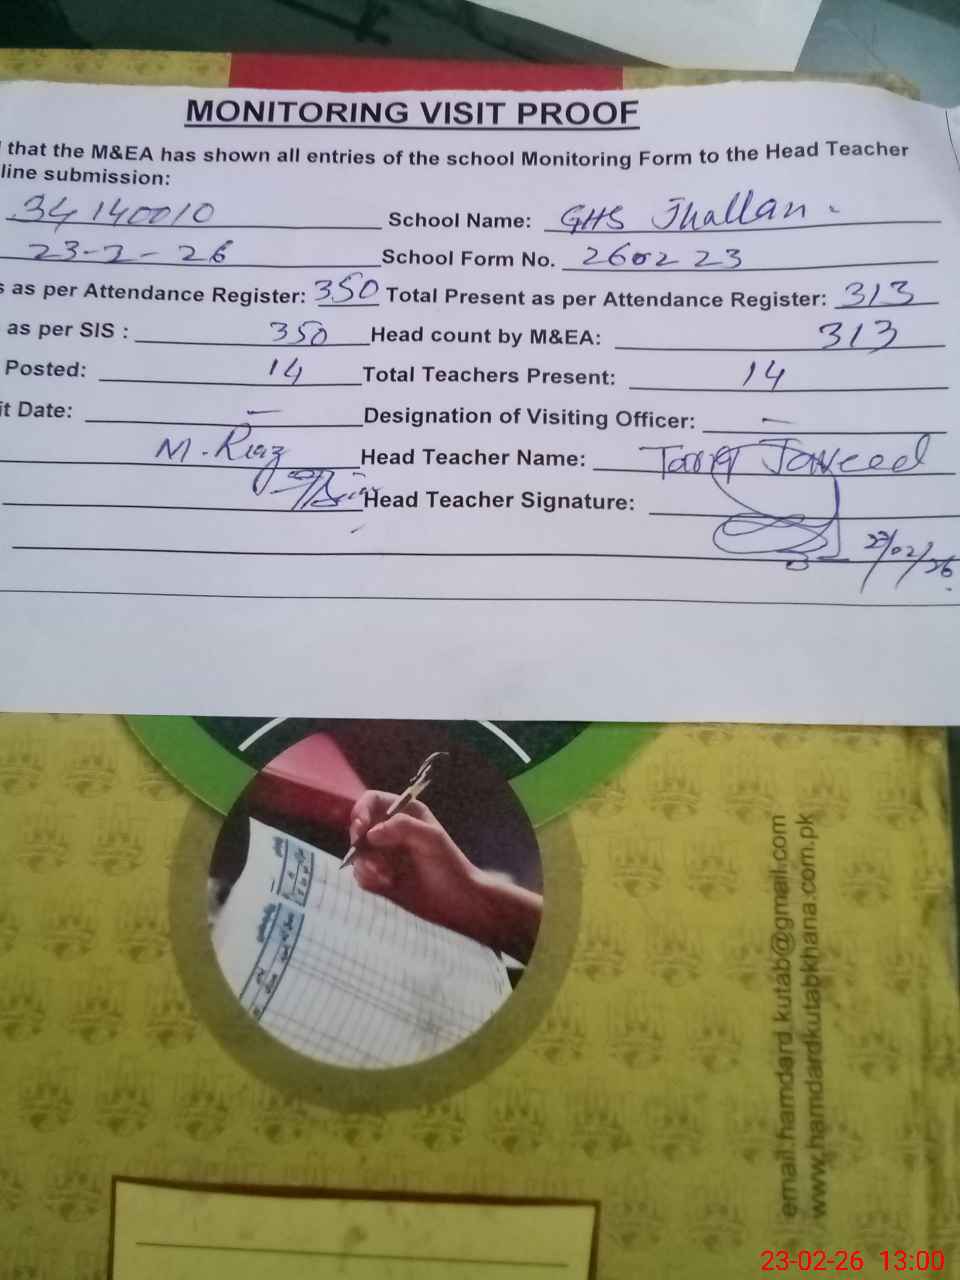 MONITORING VISIT PROOF
that the M&EA has shown all entries of the school Monitoring Form to the Head Teacher
line submission:
34140010 School Name: GHS Jhallan.
23-2-26 School Form No. 260223
s as per Attendance Register: 350 Total Present as per Attendance Register: 313
as per SIS : 350 Head count by M&EA: 313
Posted: 14 Total Teachers Present: 14
it Date: — Designation of Visiting Officer: —
M. Riaz Head Teacher Name: Javeed
Head Teacher Signature:
23/02/26
email:hamdard.kutab@gmail.com
www.hamdardkutabkhana.com.pk
23-02-26 13:00